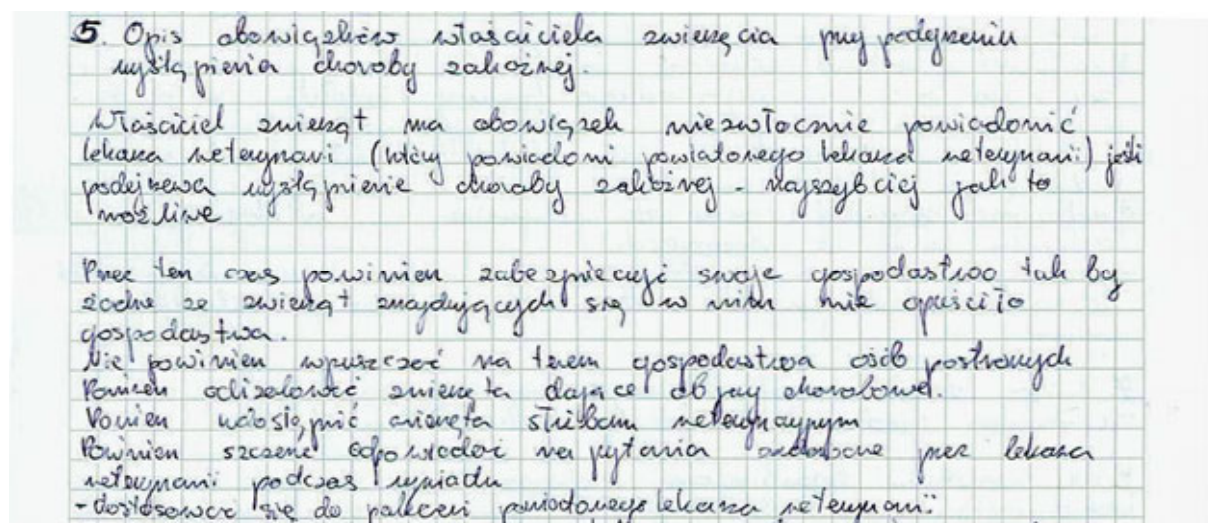 5. Opis obowiązków właściciela zwierzęcia przy podejrzeniu
wystąpienia choroby zakaźnej.
Właściciel zwierząt ma obowiązek niezwłocznie powiadomić
lekarza weterynarii (który powiadomi powiatowego lekarza weterynarii) jeśli
podejrzewa wystąpienie choroby zakaźnej - najszybciej jak to
możliwe
Przez ten czas powinien zabezpieczyć swoje gospodarstwo tak by
żadne ze zwierząt znajdujących się w nim nie opuściło
gospodarstwa.
Nie powinien wpuszczać na teren gospodarstwa osób postronnych
Powinien odizolować zwierzęta dające objawy chorobowe.
Powinien udostępnić zwierzęta służbom weterynaryjnym
Powinien szczerze odpowiadać na pytania zadawane przez lekarza
weterynarii podczas wywiadu
- dostosować się do poleceń powiatowego lekarza weterynarii